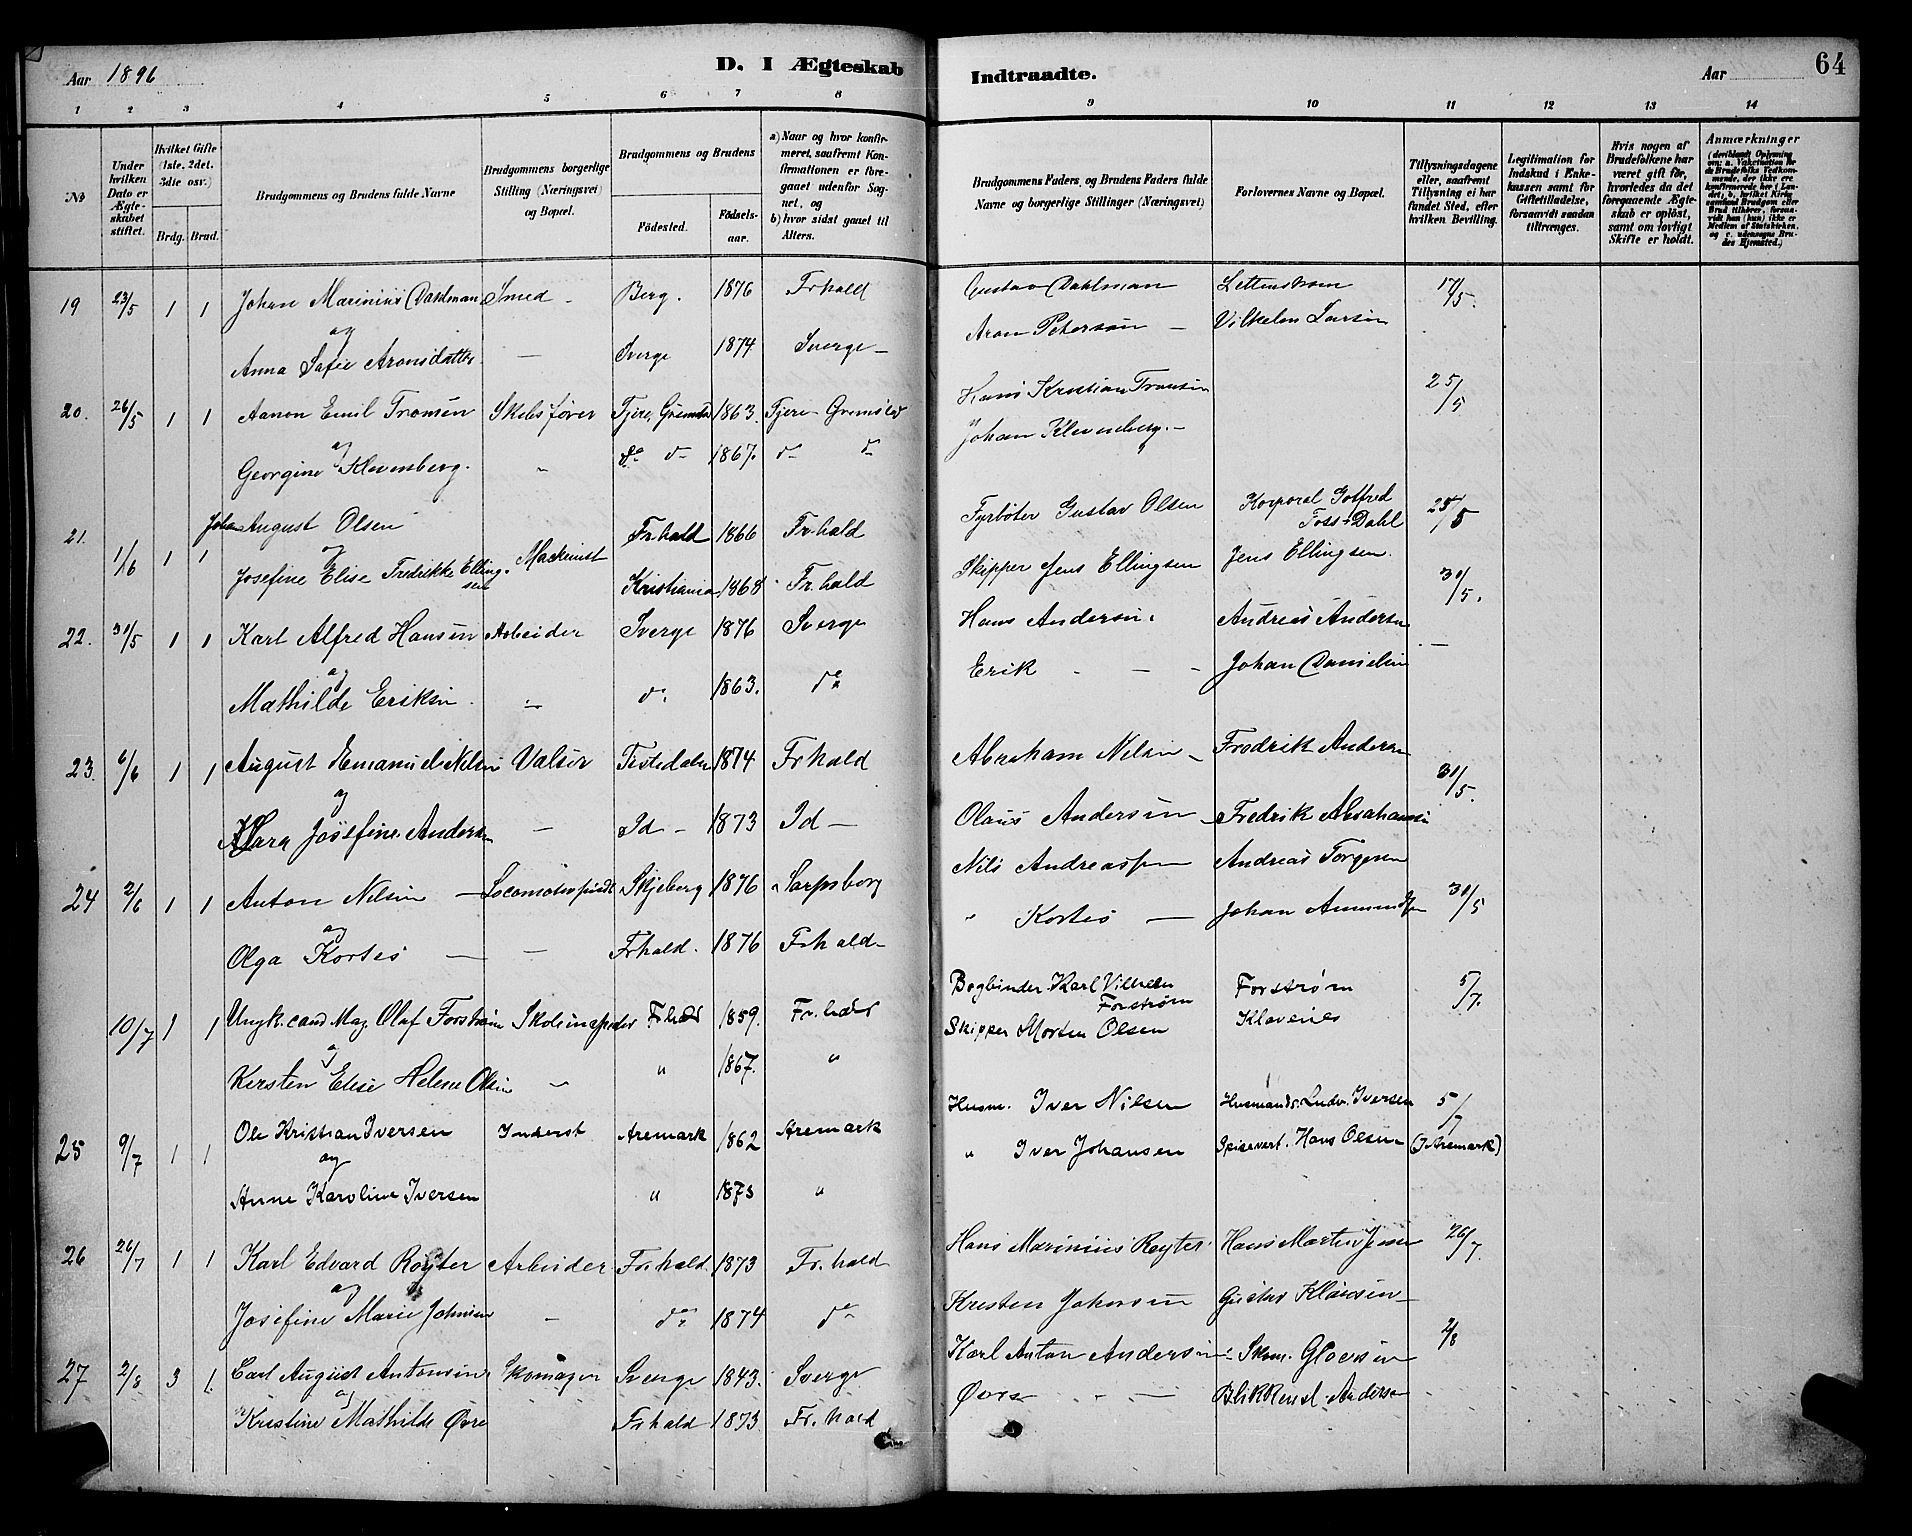 Aar 1896
D. I Ægteskab Indtraadte.
Aar 64
1 2 3 4 5 6 7 8 9 10 11 12 13 14
No
Under hvilken Dato er Ægteskabet stiftet.
Hvilket Gifte (1ste, 2det, 3die osv.)
Brdg. Brud.
Brudgommens og Brudens fulde Navne
Brudgommens borgerlige Stilling (Næringsvei) og Bopæl.
Brudgommens og Brudens
Fødested.
Fødsels-aar.
a) Naar og hvor konfirmeret, saafremt Konfirmationen er foregaaet udenfor Sognet, og
b) hvor sidst gaaet til Alters.
Brudgommens Faders, og Brudens Faders fulde Navne og borgerlige Stillinger (Næringsvei)
Forlovernes Navne og Bopæl.
Tillysningsdagene eller, saafremt Tillysning ei har fundet Sted, efter hvilken Bevilling.
Legitimation for Indskud i Enkekassen samt for Giftetilladelse, forsaavidt saadan tiltrænges.
Hvis nogen af Brudefolkene har været gift før, hvorledes da det foregaaende Ægteskab er opløst, samt om lovligt Skifte er holdt.
Anmærkninger
19 23/5 1 1 Johan Marinius Dahlman Smed - Berg. 1876 Frhald Gustav Dahlman 17/5.
og
Anna Sofie Aronsdatter - Sverge 1874 Sverge - Aron Peterson - Vilhelm Larsen
20. 26/5 1 1 Aanon Emil Tromsen Skibsfører Fjere, Grimstad 1863. Fjere - Grimstad Hans Kristian Tromsen 25/5
og
Georgine Klevenberg. - do do 1867. do do Johan Klevenberg. -
21. 1/16 1 1 Johan August Olsen Maskinist Fr.hald 1866 Fr.hald Fyrbøter Gustav Olsen Korporal Gotfred Foss-Dahl 25/5
og
Josefine Elise Fredrikke Ellingsen Kristiania 1868 Fr.hald Skipper Jens Ellingsen Jens Ellingsen.
22. 31/5 1 1 Karl Alfred Hansen Arbeider Sverge 1876 Sverge Hans Andersen. Andreas Andersen 31/5.
og
Mathilde Eriksen. - do. 1863. do Erik - - - Johan Danielsen -
23. 6/6 1 1 August Emanuel Nilsen Valser Tistedalen 1874 Frhald Abraham Nilsen - Fredrik Andersen 31/5.
og
Klara Josefine Andersen - Id - 1873 Id - Olaus Andersen - Fredrik Abrahamsen
24 2/6 1 1 Anton Nilsen - Skjeberg 1876 Sarpsborg Nils Andreassen Andreas Torgersen 31/5
og
Olga Kortes - - Frhald. 1876 Frhald - " Kortes - Johan Amundsen
10/7 1 1 Ungk. cand Mag. Olaf Forstrøm Skoleinspektør Frhald 1859. Fr.hald Bogbinder Karl Vilhelm Forstrøm Forstrøm 5/7.
og
Kersten Elise Helene Olsen - " 1867. " Skipper Morten Olsen Klavenes
25 9/7 1 1 Ole Kristian Iversen Inderst Aremark 1862 Aremark Husm. Iver Nilsen Husmands. Ludv. Iversen 5/7
og
Anne Karoline Iversen " 1873 " " Iver Johansen Spisevert. Hans Olsen (I Aremark)
26 26/7 1 1 Karl Edvard Røyter Arbeider Frhald 1873 Fr.hald Hans Marinius Røyter. Hans Martin Jensen 26/7.
og
Josefine Marie Johnsen - do. 1874 do Kristen Johnsen Gustav Klausen -
27 2/8 3 1. Carl August Antonsen Skomager Sverge 1843. Sverge Karl Anton Andersen - Skom. Gloersen 2/8
og
Kristine Mathilde Øvre Frhald 1873. Fr.hald Øvre - - Blikkensl. Andersen